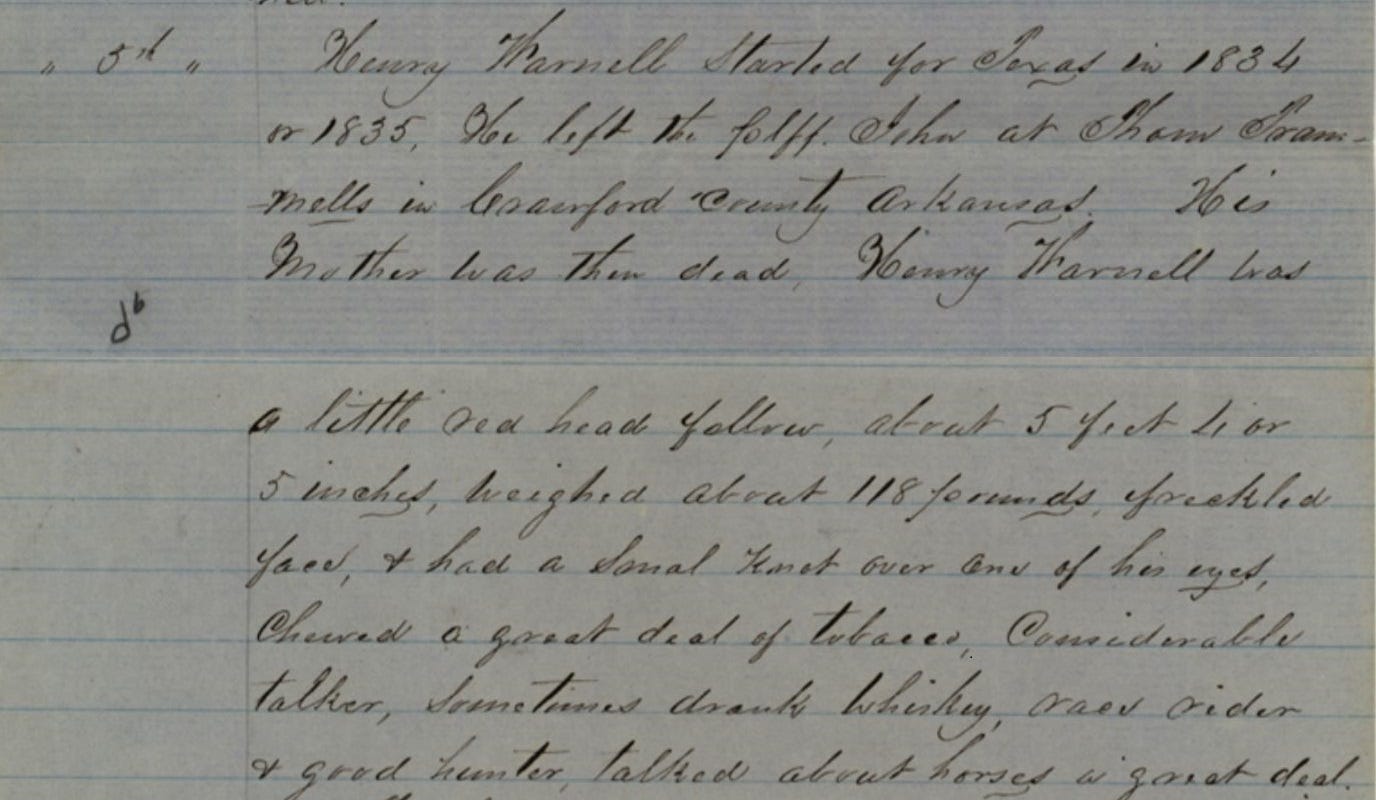 " 5th " Henry Warnell Started for Texas in 1834
or 1835, He left the plff. John at Thom Tram-
-mells in Crawford County Arkansas. His
Mother was then dead, Henry Warnell was
a little red head fellow, about 5 feet 4 or
5 inches, weighed about 118 pounds, freckled
face, & had a smal Knot over one of his eyes,
Chewed a great deal of tobacco, Considerable
talker, sometimes drank Whiskey, race rider
& good hunter, talked about horses a great deal.